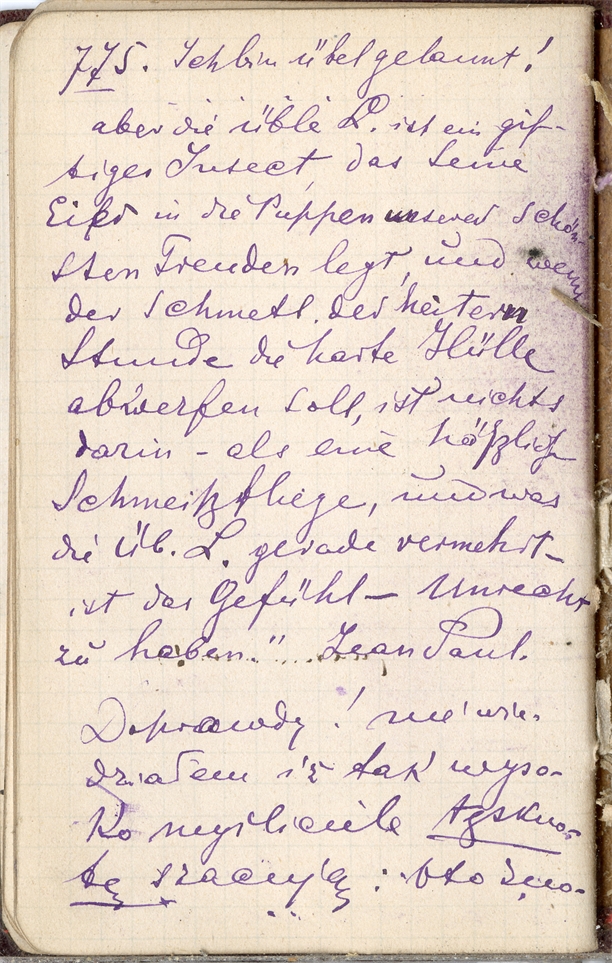 775. Ich bin übel gelaunt!
aber die üble L. ist ein gif-
tiges Insect, das seine
Eier in die Puppen unserer schön-
sten Freuden legt, und wenn
der Schmett. der heitern
Stunde die harte Hülle
abwerfen soll, ist nichts
darin – als eine häßlich
Schmeißfliege, und was
die üb. L. gerade vermehrt –
ist das Gefühl – Unrecht
zu haben." Jean Paul.
Doprawdy! nie wie-
działem iż tak wyso-
ko myśliciele